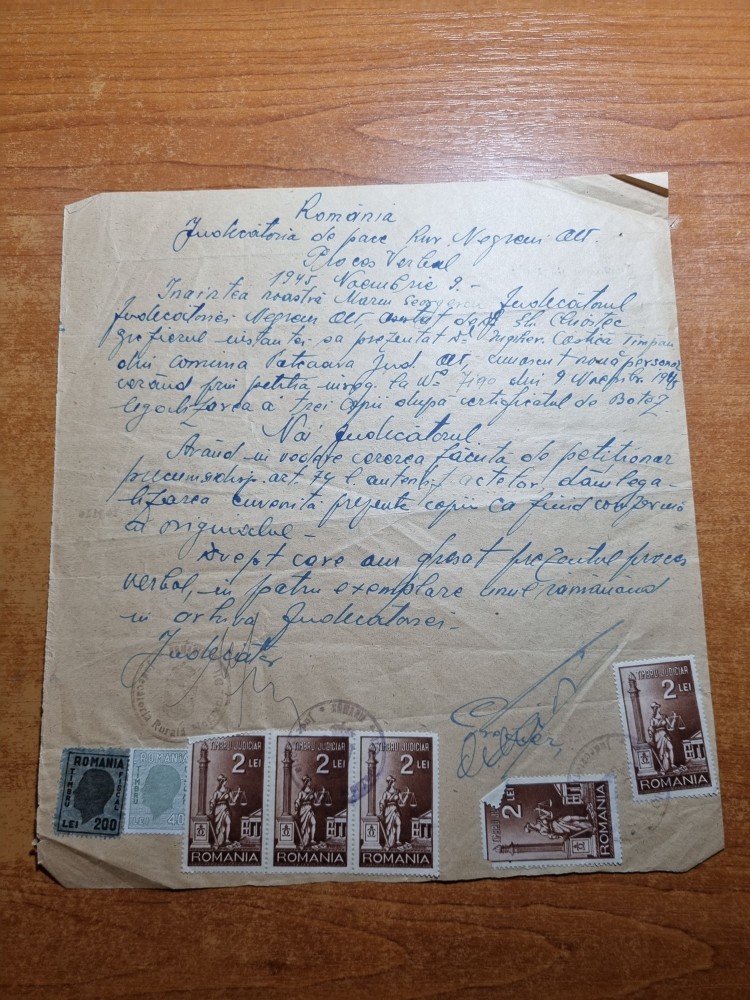 România
Judecătoria de pace Rur. Negreni Olt.
Proces Verbal
1945 Noembrie 9.-
Inaintea noastră Marin Georgescu Judecătorul
Judecătoriei Negreni Olt, de
grefierul instanței sa prezentat Dl Costica Timpau
din comuna Jud. Olt, cunoscut nouă personal
cerând prin petitia inreg. la No din 9 Noembr. 1945
legalizarea a trei copii după certificatul de Botez.
Noi Judecătorul
Având in vedere cererea făcuta de petiționar
precum si disp. art. 74 l. autentif. actelor, dăm lega-
lizarea cuvenita prezentei copii ca fiind conformă
cu originalul -
Drept care am dresat prezentul proces
verbal, in patru exemplare unul rămânând
in arhiva Judecătoriei -
Judecător
Grefier
ROMANIA
TIMBRU FISCAL
LEI 200
ROMANIA
TIMBRU
LEI 40
TIMBRU JUDICIAR
2 LEI
ROMANIA
TIMBRU JUDICIAR
2 LEI
ROMANIA
TIMBRU JUDICIAR
2 LEI
ROMANIA
TIMBRU JUDICIAR
2 LEI
ROMANIA
TIMBRU JUDICIAR
2 LEI
ROMANIA